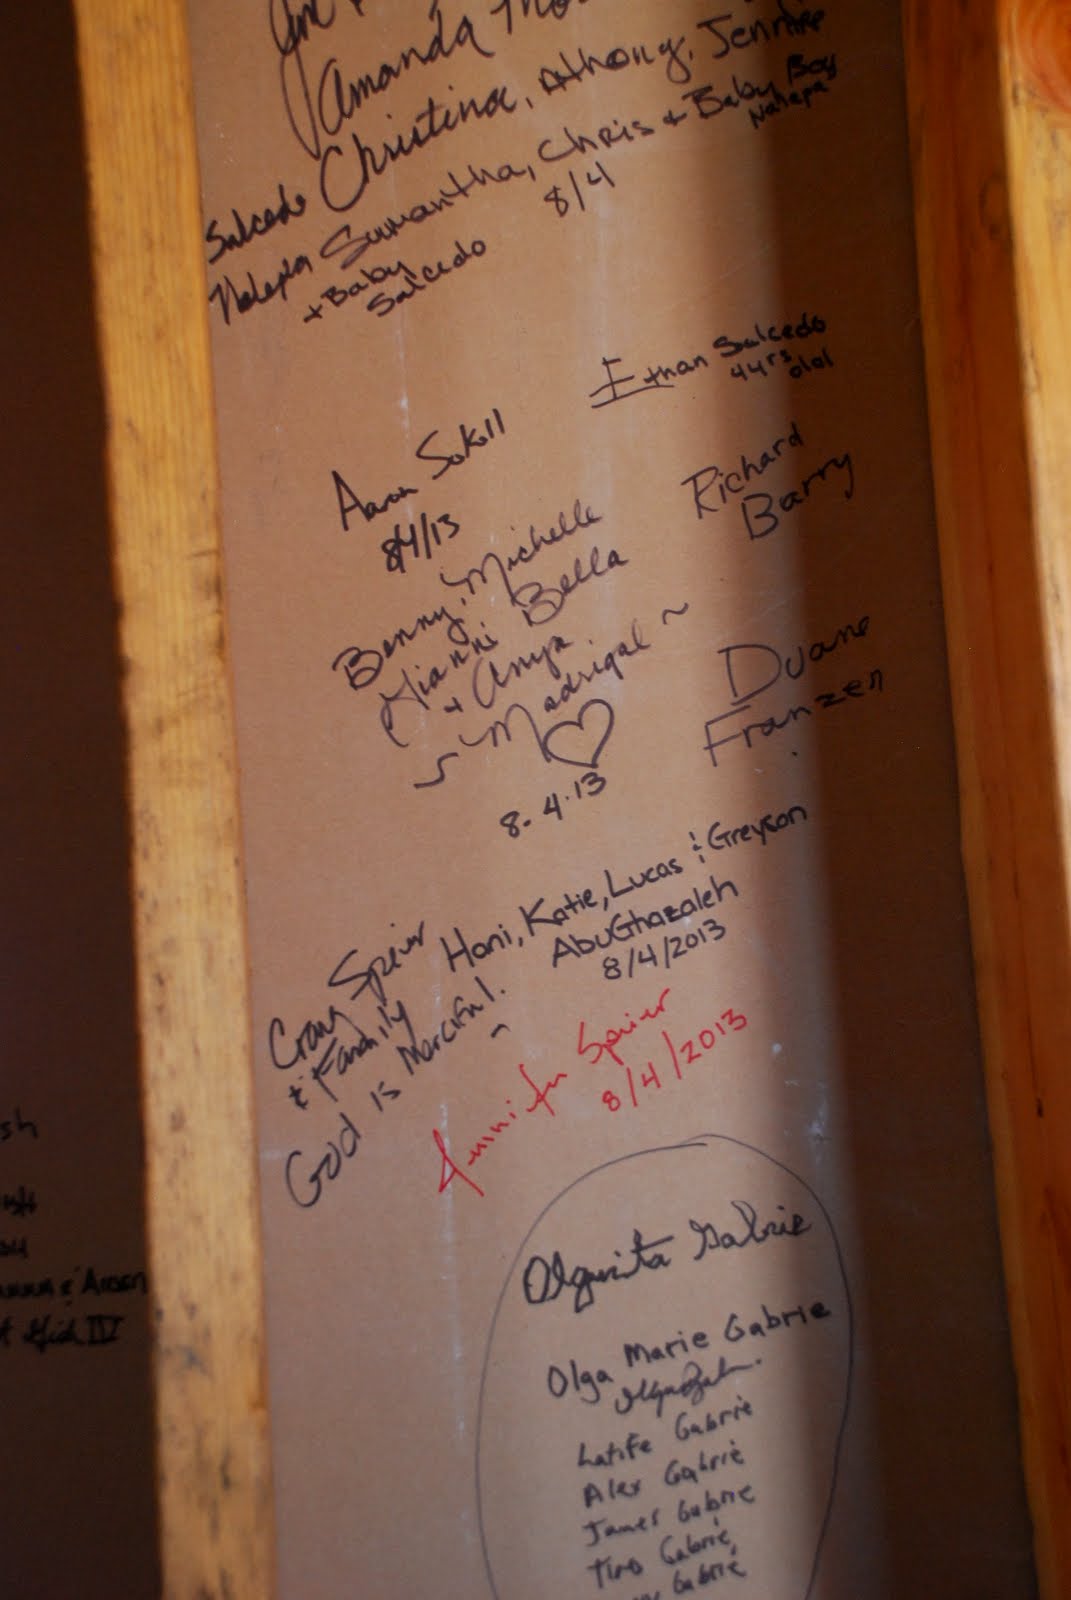 Jim
Amanda
Christina, Anthony, Jennifer
Salcedo
Samantha, Chris + Baby Boy
Nalepa
Nalepa
8/4
+ Baby
Salcedo
Ethan Salcedo
4 yrs
old
Aaron Sokoll
8/4/13
Richard
Barry
Benny, Michelle
Gianni Bella
+ Anya
~ Madrigal ~
♡
8.4.13
Duane
Franzen
Hani, Katie, Lucas & Greyson
AbuGhazaleh
8/4/2013
Craig Speier
& Family
God is Merciful.
Jennifer Speier
8/4/2013
Olguita Gabrie
Olga Marie Gabrie
Latife Gabrie
Alex Gabrie
James Gabrie
Tino Gabrie
Gabrie
sh
IV